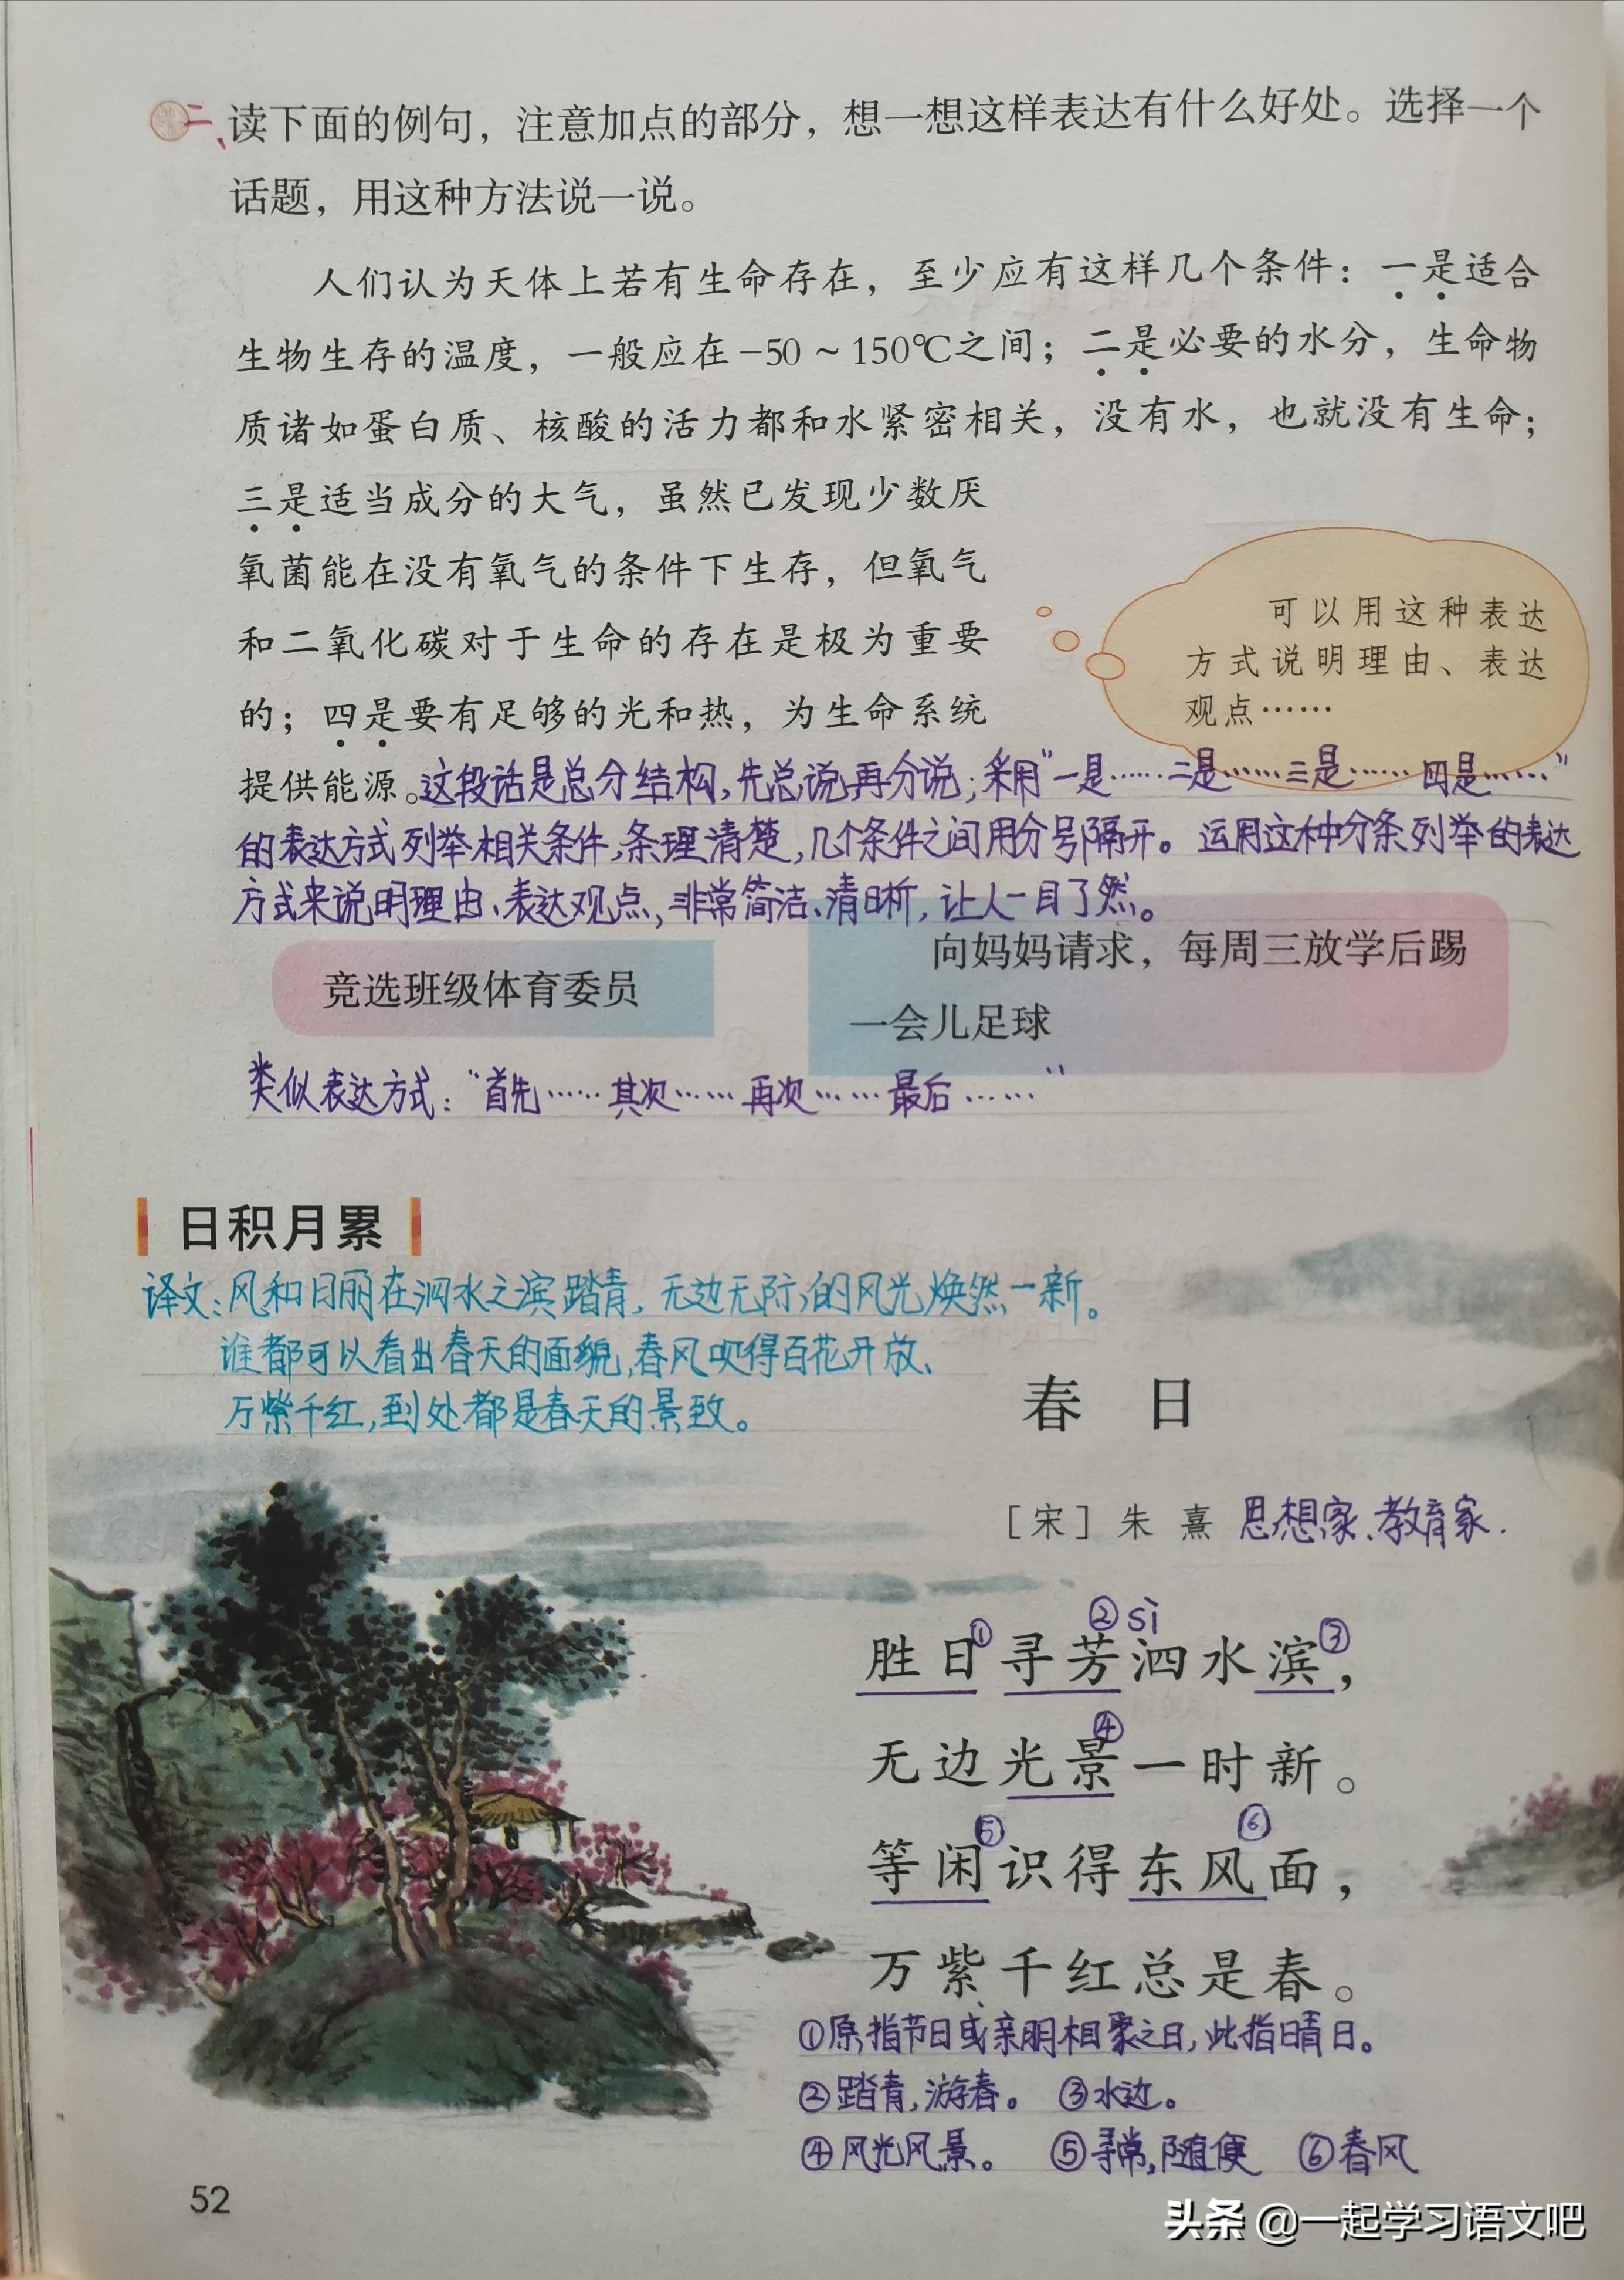 二、读下面的例句，注意加点的部分，想一想这样表达有什么好处。选择一个
话题，用这种方法说一说。
人们认为天体上若有生命存在，至少应有这样几个条件：一是适合
生物生存的温度，一般应在-50～150℃之间；二是必要的水分，生命物
质诸如蛋白质、核酸的活力都和水紧密相关，没有水，也就没有生命；
三是适当成分的大气，虽然已发现少数厌
氧菌能在没有氧气的条件下生存，但氧气
和二氧化碳对于生命的存在是极为重要
的；四是要有足够的光和热，为生命系统
可以用这种表达
方式说明理由、表达
观点……
提供能源。这段话是总分结构，先总说再分说；采用“一是……二是……三是……四是……”
的表达方式列举相关条件，条理清楚，几个条件之间用分号隔开。运用这种分条列举的表达
方式来说明理由、表达观点，非常简洁、清晰，让人一目了然。
竞选班级体育委员
向妈妈请求，每周三放学后踢
一会儿足球
类似表达方式：“首先……其次……再次……最后……”
日积月累
译文：风和日丽在泗水之滨踏青，无边无际的风光焕然一新。
谁都可以看出春天的面貌，春风吹得百花开放、
万紫千红，到处都是春天的景致。
春 日
［宋］朱 熹 思想家、教育家.
② sì
胜日①寻芳泗水滨③，
无边光景④一时新。
等闲⑤识得东风⑥面，
万紫千红总是春。
①原指节日或亲朋相聚之日，此指晴日。
②踏青，游春。 ③水边。
④风光风景。 ⑤寻常，随便 ⑥春风
52
头条 @一起学习语文吧